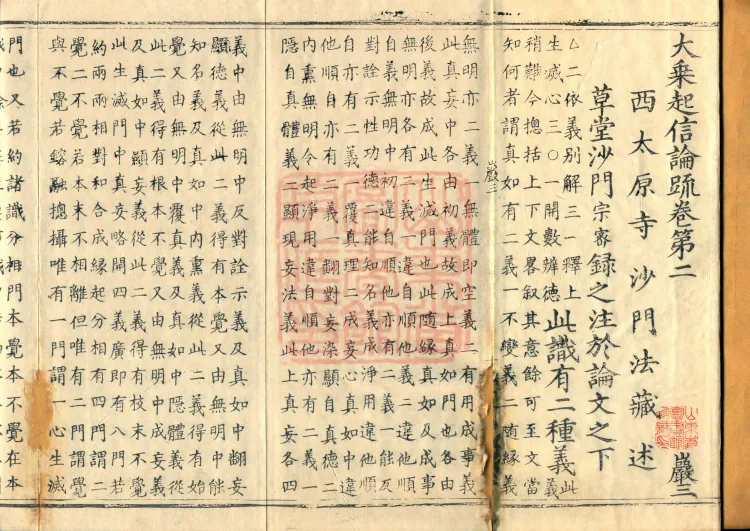 大乗起信論䟽卷第二 巖三
西太原寺沙門法藏述
草堂沙門宗宻錄之注於論文之下
二依義別解三一釋上
生滅心三〇一開數辨德
此識有二種義
此
稍難今揔括上下文畧叙其意餘可至文當
知何者謂真如有二義一不變義二隨緣義
巖三
無明亦二義一無體即空義二有用成事義
此真妄中各由初義故成上真如門也各由
後義故成此生滅門也此隨緣真如及成事
無明亦各有二義一違自順他義二違他順
自義無明中初違自順他亦有二義一能反
對詮示性功德二能知名義成淨用違他順
自亦有二義一覆真理二成妄心真如中違
他順自亦有二義一翻對妄染顯自真德二
內熏無明令起淨用違自順他亦有二義一
隱自真體義二顯現妄法義此上真妄各四
義中由無明中反對詮示義及真如中翻妄
顯德義從此二義得有本覺又由無明中能
知名義及真如中內熏義從此二義得有始
覺又由無明中覆真義及真如中隱體義從
此二義得有根本不覺又由無明中成妄義
及真如中顯妄義從此二義得有枝末不覺
此生滅門中真妄略開四義廣即有八門若
約兩兩相對和合成緣起分相有四門謂二
覺二不覺若本末不相離但唯有二門謂覺
與不覺若鎔融揔攝唯有一門謂一心生滅
門也又若約諸識分相門本覺本不覺在本